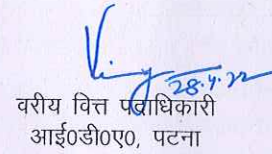 28.4.22
वरीय वित्त पदाधिकारी
आई0डी0ए0, पटना